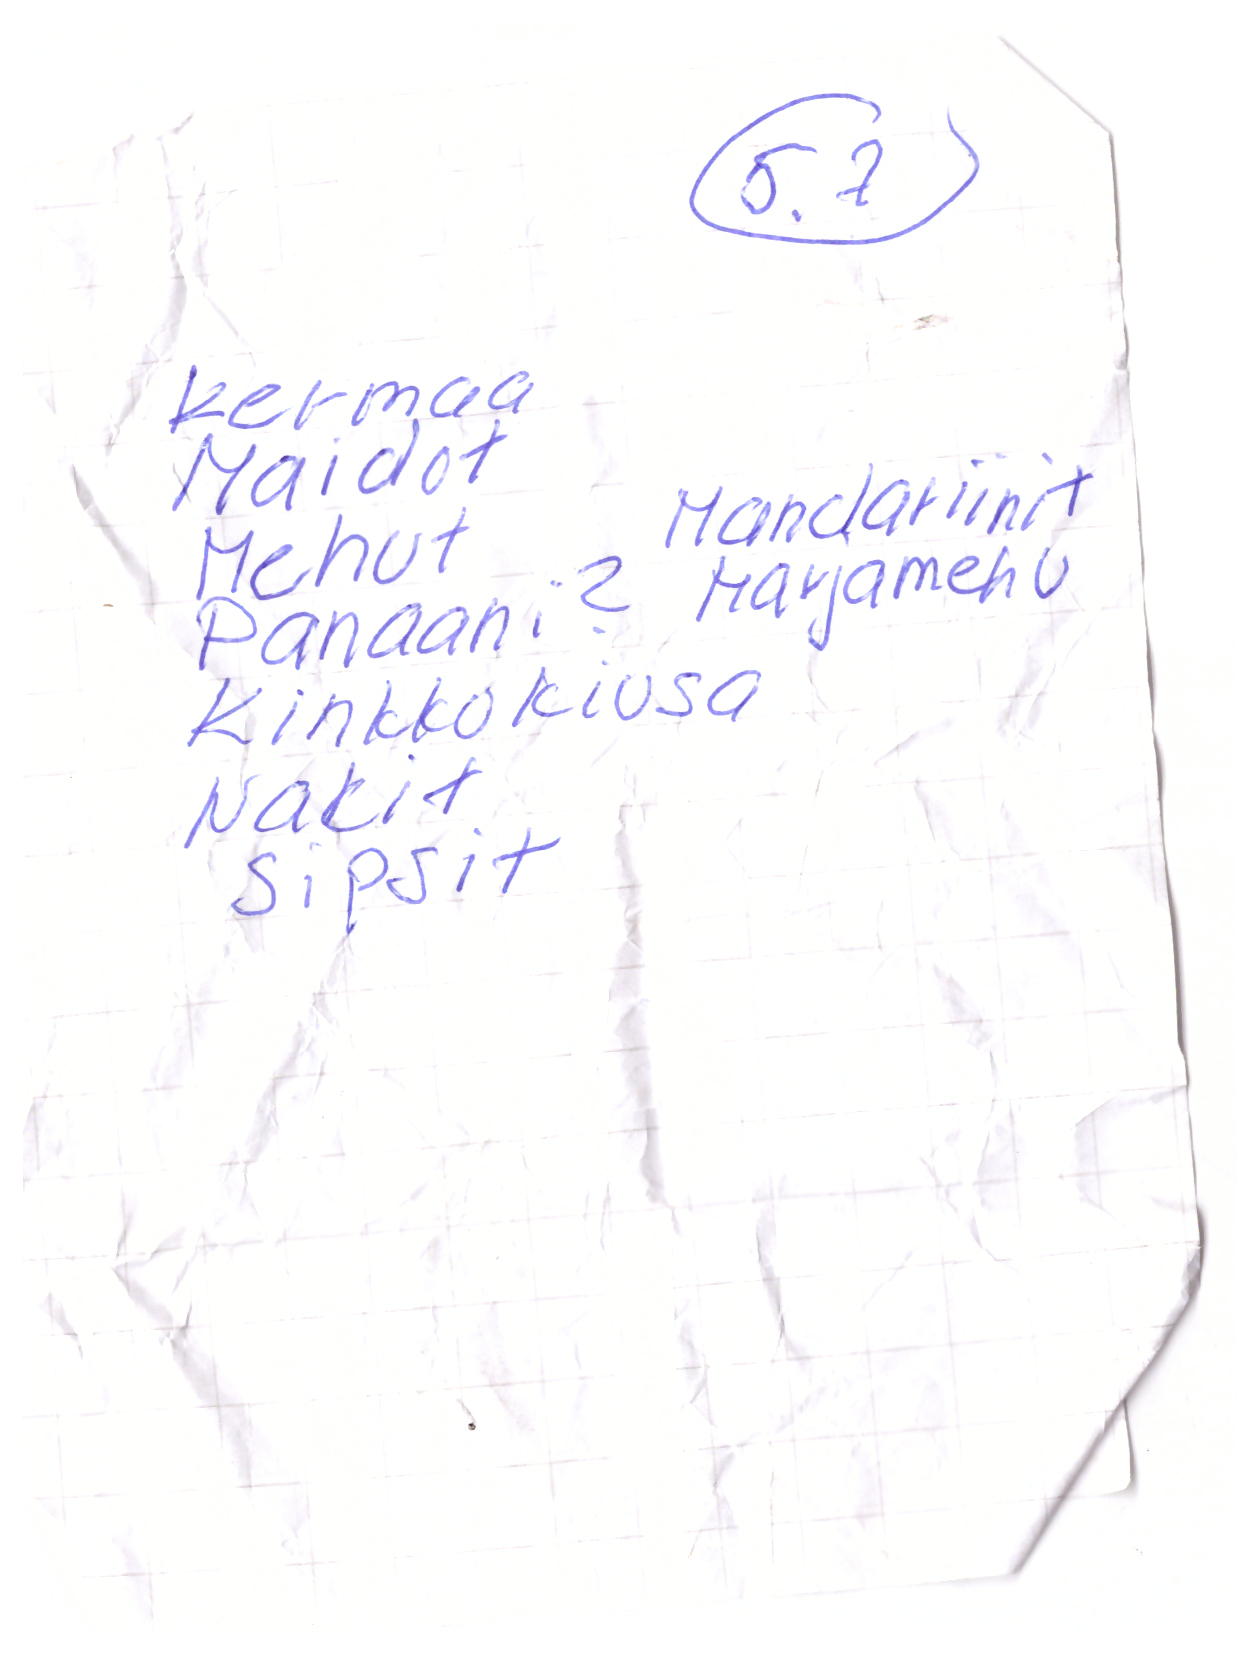 5.7
kermaa
Maidot
Mehut
Panaani?
Kinkkokiusa
Nakit
Sipsit
Mandariinit
Marjamehu